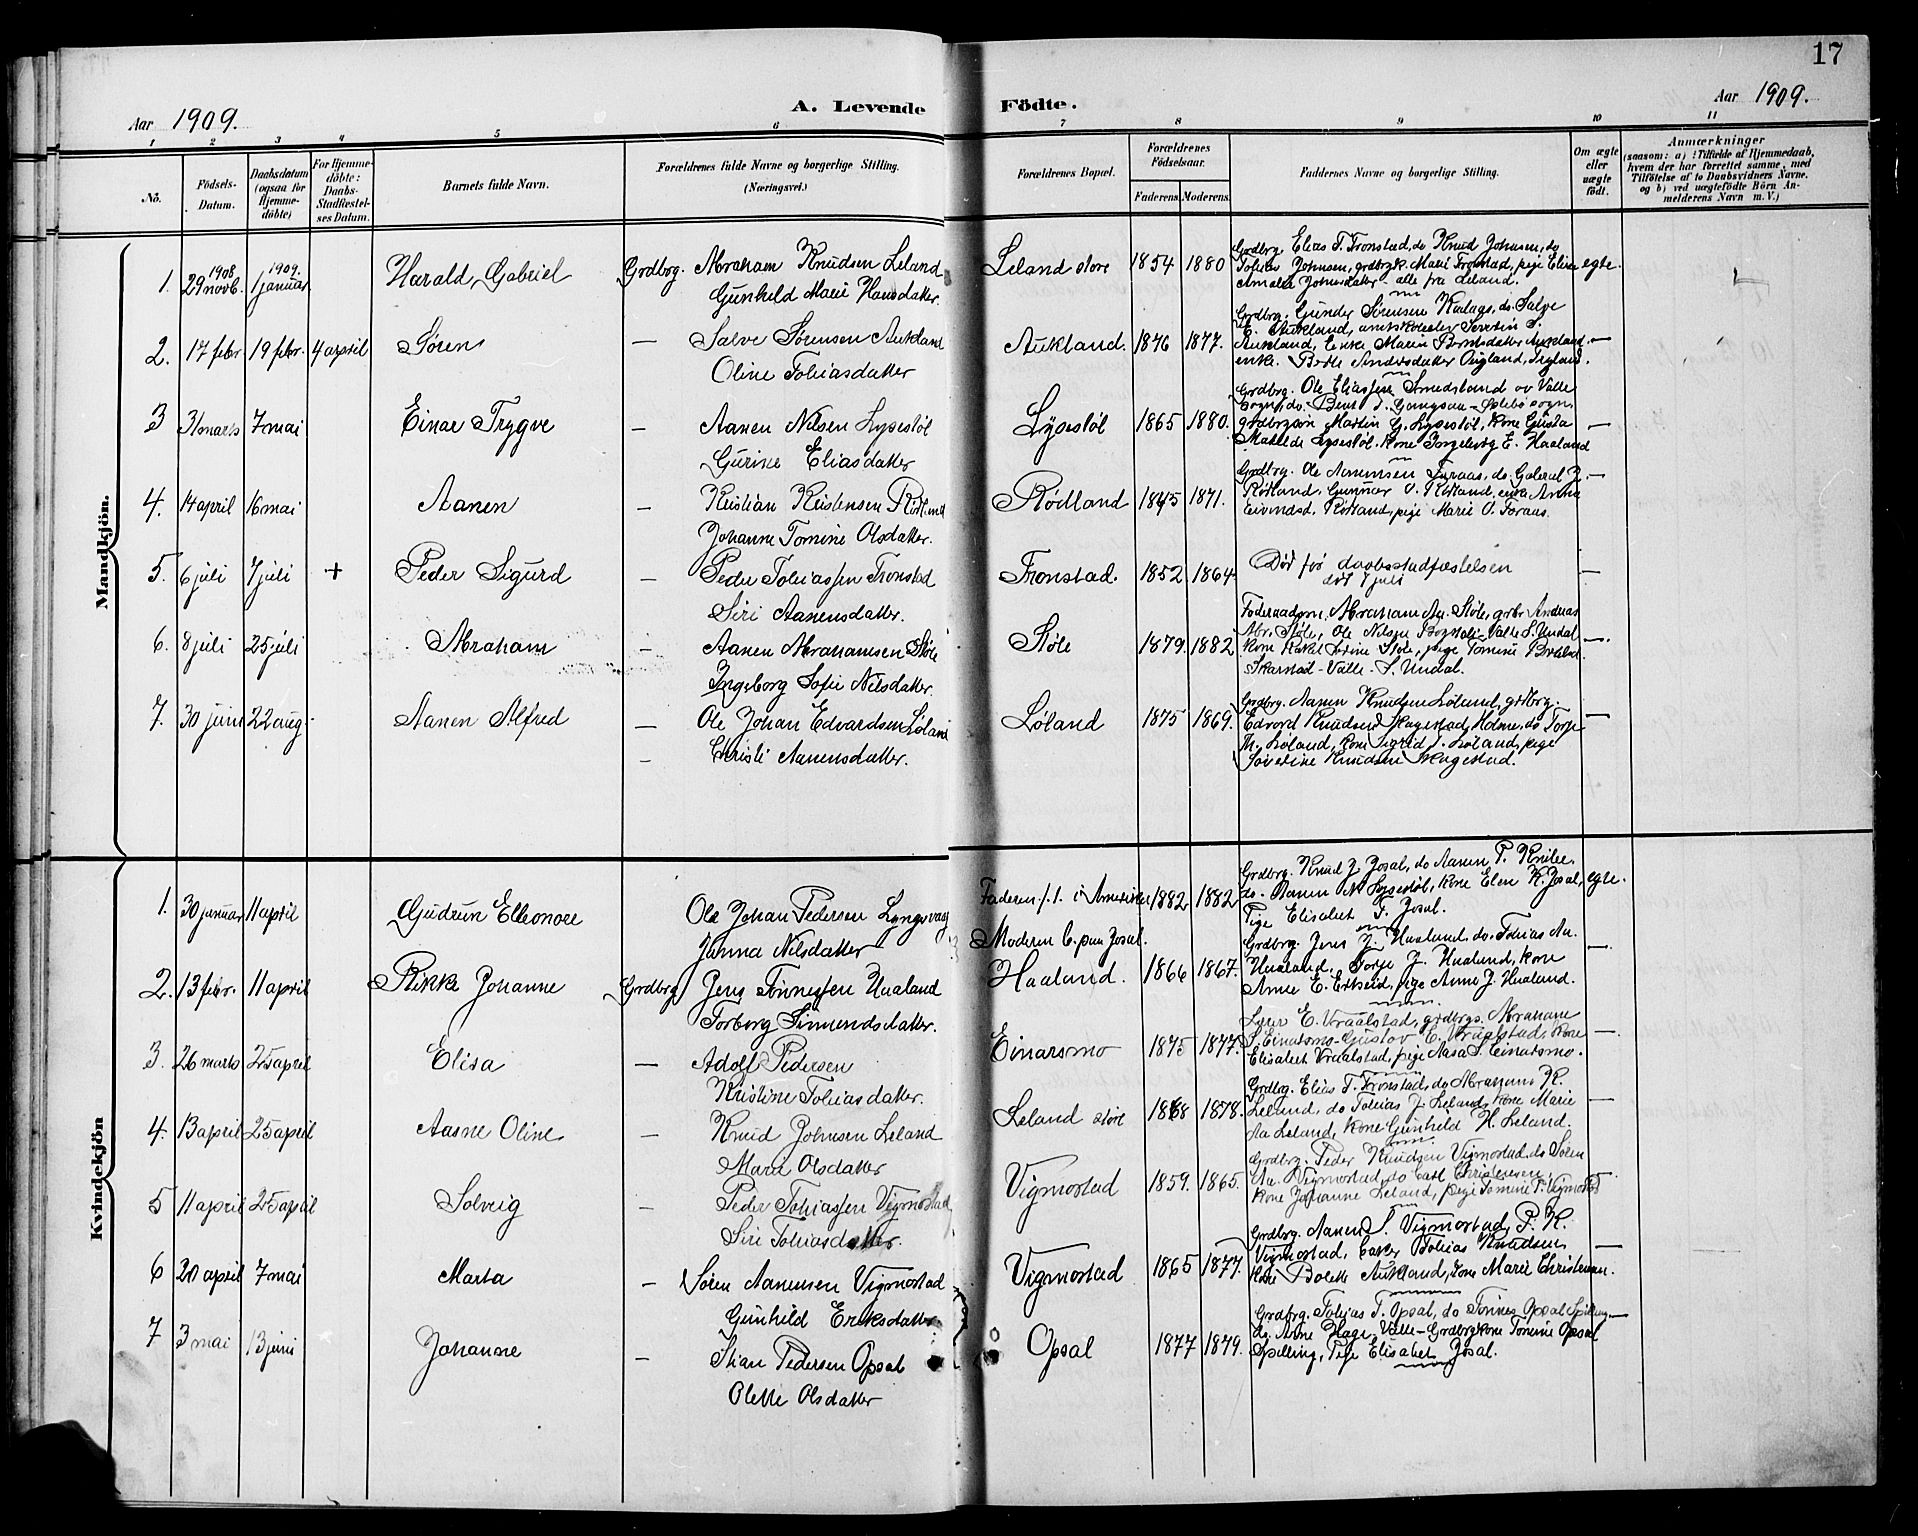 17
Aar 1909.
A. Levende Födte.
Aar 1909.
1 2 3 4 5 6 7 8 9 10 11
No.
Födsels-Datum.
Daabsdatum (ogsaa for Hjemmedöbte)
For Hjemmedöbte: Daabs-Stadfæstelses Datum.
Barnets fulde Navn.
Forældrenes fulde Navne og borgerlige Stilling. (Næringsvei.)
Forældrenes Bopæl.
Forældrenes Födselsaar.
Faderens Moderens
Faddernes Navne og borgerlige Stilling.
Om ægte eller uægte födt.
Anmærkninger
(saasom: a) i Tilfælde af Hjemmedaab, hvem der har forrettet samme, med Tilföielse af to Daabsvidners Navne, og b) ved uægtefödte Börn Anmelderens Navn m. V.)
Mandkjön.
1. 1908 29 novb. 1909. 1 januar Harald Gabriel Grdbrg. Abraham Knudsen Leland
Gunhild Marie Hansdatter.
Leland store 1854 1880
Grdbrg. Elias T. Tronstad, do Knud Johnsen, do
Tobias Johnsen, grdbrgk. Marie Tronstad, pige Elise
Amalia Johnsdatter - alle fra Leland.
egte.
2. 17 febr 19 febr. 4 april Søren — Salve Sørensen Aukland
Oline Tobiasdatter
Aukland. 1876 1877.
Grdbrg. Gunder Sørensen do. Salve
E. Aukland, Severin S.
Aukland, Enke Maria Berntsdatter Aukland
enke. Berte Andersdatter Øigland,
—
3 31 marts 7 mai Einar Trygve — Aanen Nilsen Lysestöl
Gurine Eliasdatter
Lysestöl 1865 1880.
Grdbrg. Ole Eliassen Smedsland ov Valle
sogn, do. Bent
grdbrgsøn Martin G. Lysestöl, Kone Gusta
Matilde Lysestöl, kone Ingeborg E. Haaland
—
4. 14 april 16 mai Aanen — Kristian Kristensen Rödland
Johanne Tomine Olsdatter.
Rödland 1845 1871.
Grdbrg. Ole Aanensen Foraas, do. Gabriel J.
Rödland, Gunnar O. Rödland, enke Anna
Eivindsd. Rödland, pige Marie O. Foraas.
—
5. 6 juli 7 juli + Peder Sigurd — Peder Tobiassen Tronstad
Siri Aanensdatter.
Tronstad. 1852 1864
Död før daabsstadfæstelsen
död 7 juli
—
6. 8 juli 25 juli Abraham — Aanen Abrahamsen Støle
Ingeborg Sofie Nilsdatter.
Støle 1879. 1882
Föderaadsm. Abraham Aa. Støle, grbr. Andreas
Abr. Støle, Ole Nilsen Valle S. Undal
kone Rakel Serine Støle, pige Tomine
Skarstad - Valle - S. Undal.
—
7. 30 juni 22 aug. Aanen Alfred — Ole Johan Edvardsen Löland
— Christi Aanensdatter.
Löland 1875 1869.
Grdbrg. Aanen Knudsen Löland, grbrg.
Edvord Knudsen Skagestad, Holme, do Torje
Th. Löland, kone Sigrid T. Löland, pige
Severine Knudsen Skagestad.
—
Kvindekjön
1. 30 januar 11 april Gudrun Elleonore Ole Johan Pedersen Lyngsvag
Janna Nilsdatter
Faderen f. t. i Amerika
Moderen b. paa Josal.
1882 1882
Grdbrg. Knud J. Josal, do Aanen P. Knibe.
do. Aanen N. Lysestöl, kone Elen K. Josal,
Pige Elisabet T. Josal.
egte.
2. 13 febr. 11 april Rikke Johanne Grdbrg Jens Tönnessen Haaland
Torborg Simensdatter.
Haaland. 1866 1867.
Grdbrg. Jens J. Haaland, do. Tobias Aa.
Haaland, Torje J. Haaland, kone
Anne E. Erkeid, pige Anne J. Haaland.
—
3. 26 marts 25 april Elisa — Adolf Pedersen
Kristine Tobiasdatter.
Einarsmo 1875 1877.
E. Vraalstad, grdbrgs. Abraham
S. Einarsmo - Gustov E. Vraalstad, kone
Elisabet Vraalstad, pige Aasa S. Einarsmo.
—
4. 13 april 25 april Aasne Oline — Knud Johnsen Leland
Mara Olsdatter
Leland store 1868 1878.
Grdbrg. Elias T. Tronstad, do Abraham K.
Leland, do Tobias J. Leland, kone Marie
Aa Leland, kone Gunhild H. Leland.
—
5 11 april 25 april Solveig — Peder Tobiassen Vigmostad
Siri Tobiasdatter.
Vigmostad 1859. 1865.
Grdbrg. Peder Knudsen Vigmostad, do Søren
Aa. Vigmostad, do Carl Christensen,
kone Johanne Leland, pige Tomine P. Vigmostad
6 20 april 7 mai Marta — Søren Aanensen Vigmostad
Gunhild Eriksdatter
Vigmostad 1865 1877.
Grdbrg. Aanen S. Vigmostad, P. K.
Vigmostad, Tobias Knudsen
kone Bolette Aukland, kone Marie Christensen.
—
7 3 mai 13 juni Johanne — Stian Pedersen Opsal
Olette Olsdatter
Opsal 1877 1879.
Grdbrg. Tobias T. Opsal, do Tönnes Opsal Spilling
do. Arne Hage, Valle - Grdbrgkone Tomine Opsal
Spilling, Pige Elisabet Josal.
—